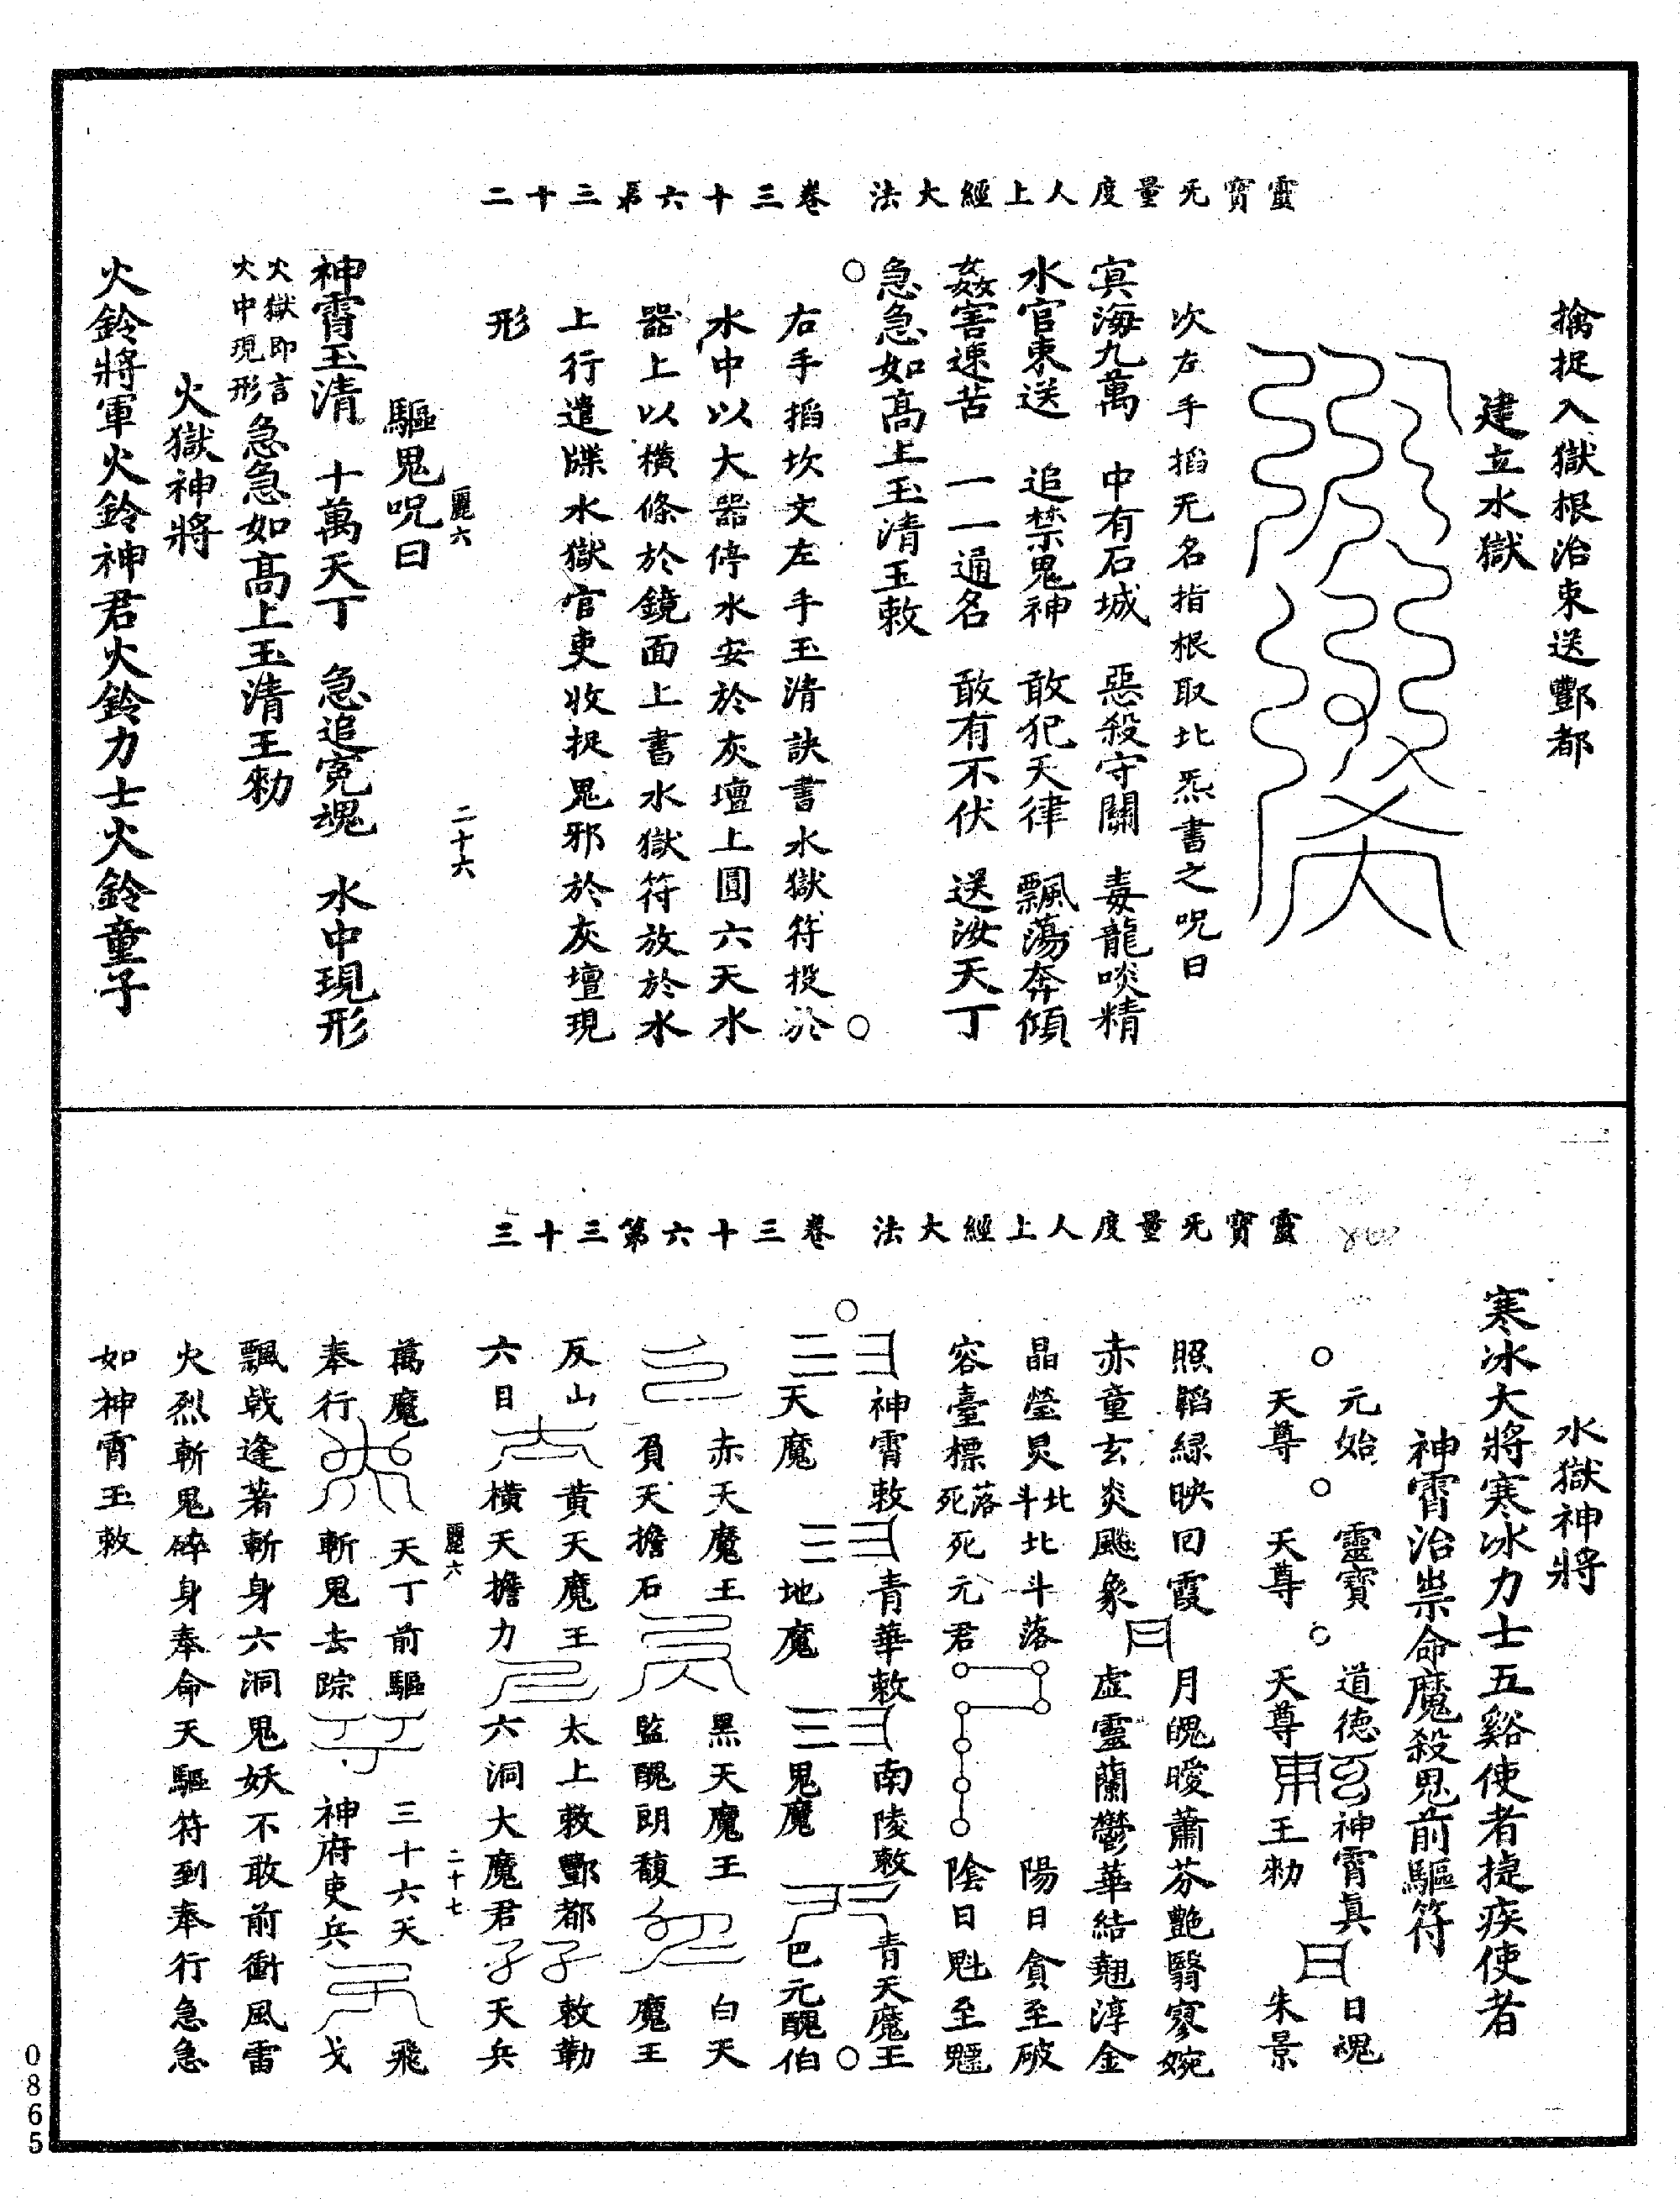 靈寶无量度人上經大法 卷三十六第三十二
擒捉入獄根治束送酆都
建立水獄
次左手掐无名指根取北炁書之呪曰
寅海九萬 中有石城 惡殺守關 毒龍啖精
水官束送 追禁鬼神 敢犯天律 飄蕩奔傾
姦害速苦 一一通名 敢有不伏 送汝天丁
急急如高上玉清玉敕
右手掐坎文左手玉清訣書水獄符投於
水中以大器停水安於灰壇上圓六天水
器上以橫條於鏡面上書水獄符放於水
上行遣牒水獄官吏收捉鬼邪於灰壇現
形
麗六 二十六
驅鬼呪曰
神霄玉清 十萬天丁 急追寃魂 水中現形
火獄即言
火中現形
急急如高上玉清王勑
火獄神將
火鈴將軍火鈴神君火鈴力士火鈴童子
靈寶无量度人上經大法 卷三十六第三十三
水獄神將
寒冰大將寒冰力士五谿使者捷疾使者
神霄治祟命魔殺鬼前驅符
元始 靈寶 道德 神霄真 日魂
天尊 天尊 天尊 王勑 朱景
照韜綠映回霞 月魄曖蕭芬艷翳寥婉
赤童玄炎飈象 虛靈蘭鬱華結翹淳金
晶瑩炅北斗北斗落 陽日貪至破
容臺標落死死元君 陰日魁至魒
神霄敕 青華敕 南陵敕 青天魔王
天魔 地魔 鬼魔 巴元醜伯
赤天魔王 黑天魔王 白天
負天擔石 監醜朗馥 魔王
反山 黃天魔王 太上敕酆都 敕勒
六目 橫天擔力 六洞大魔君 天兵
麗六 二十七
萬魔 天丁前驅 三十六天 飛
奉行 斬鬼去踪 神府吏兵 戈
飄戟逢著斬身六洞鬼妖不敢前衝風雷
火烈斬鬼碎身奉命天驅符到奉行急急
如神霄玉敕
0865